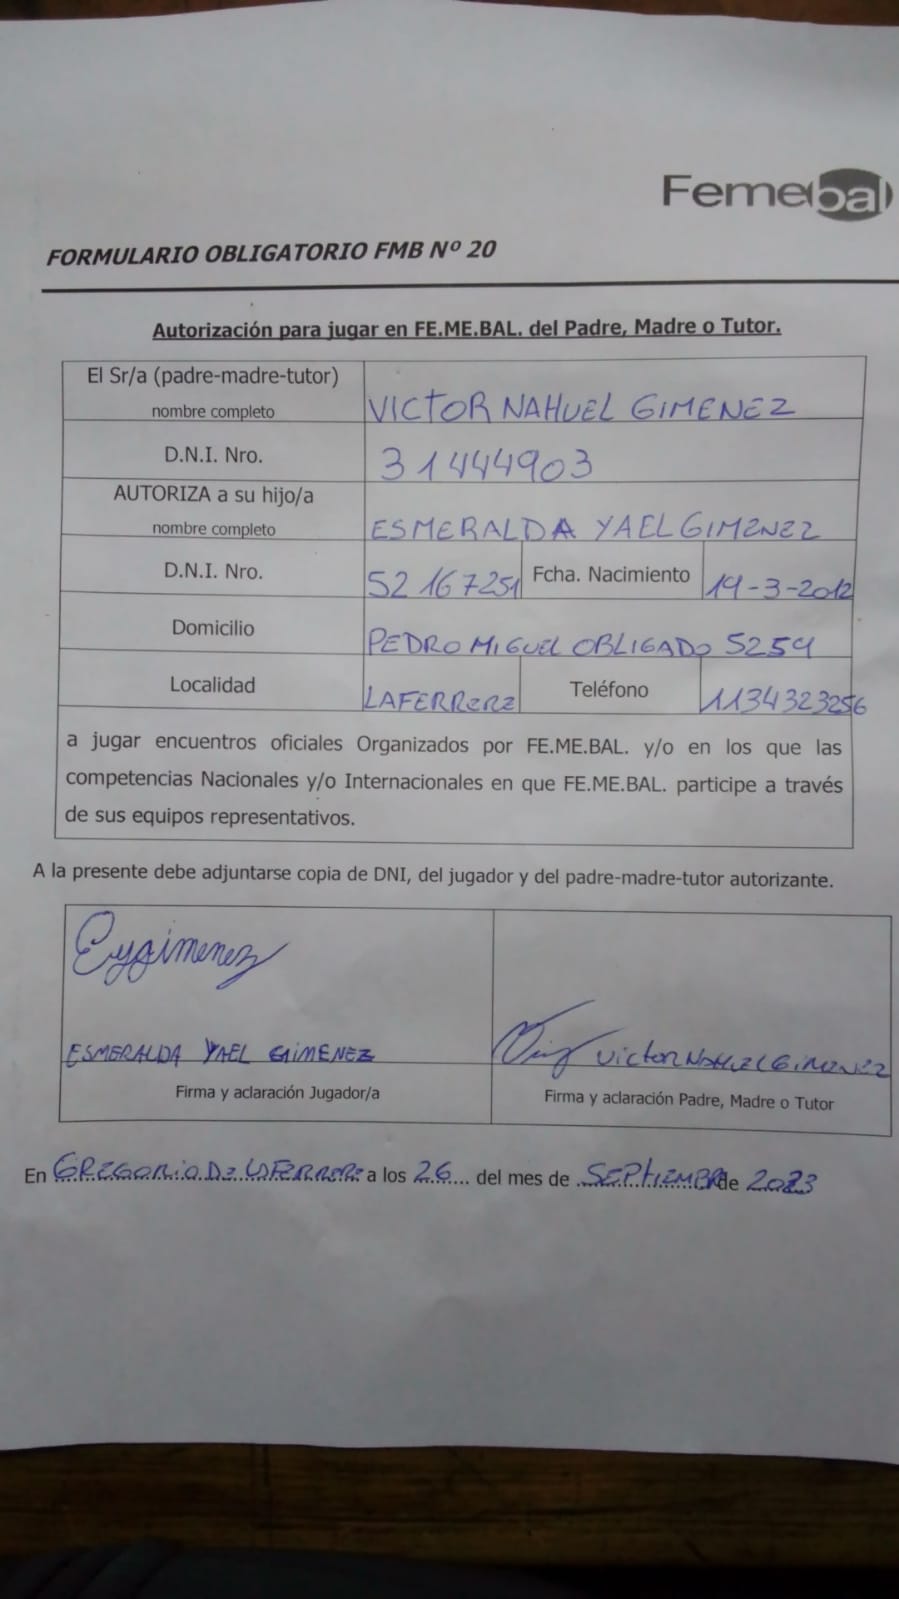 Femebal
FORMULARIO OBLIGATORIO FMB Nº 20
Autorización para jugar en FE.ME.BAL. del Padre, Madre o Tutor.
El Sr/a (padre-madre-tutor)
nombre completo
VICTOR NAHUEL GIMENEZ
D.N.I. Nro.
31444903
AUTORIZA a su hijo/a
nombre completo
ESMERALDA YAEL GIMENEZ
D.N.I. Nro.
52 167251
Fcha. Nacimiento
19-3-2012
Domicilio
PEDRO MIGUEL OBLIGADO 5259
Localidad
LAFERRERE
Teléfono
1134323256
a jugar encuentros oficiales Organizados por FE.ME.BAL. y/o en los que las
competencias Nacionales y/o Internacionales en que FE.ME.BAL. participe a través
de sus equipos representativos.
A la presente debe adjuntarse copia de DNI, del jugador y del padre-madre-tutor autorizante.
Eygimenez
ESMERALDA YAEL GIMENEZ
Firma y aclaración Jugador/a
Victor NAHUEL GIMENEZ
Firma y aclaración Padre, Madre o Tutor
En GREGORIO DE LAFERRERE a los 26 .... del mes de SEPTIEMBRE de 2023